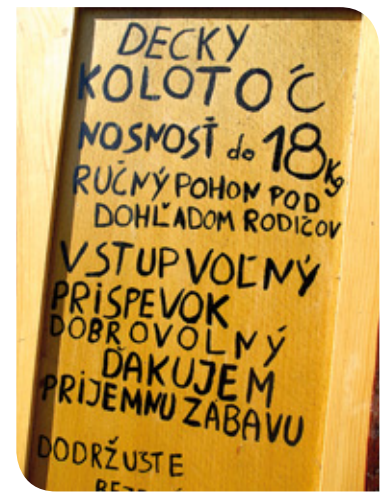 DECKY
KOLOTOČ
NOSNOSŤ do 18Kg
RUČNÝ POHON POD
DOHĽADOM RODIČOV
VSTUP VOĽNÝ
PRÍSPEVOK
DOBROVOLNÝ
ĎAKUJEM
PRIJEMNU ZÁBAVU
DODRŽUJTE